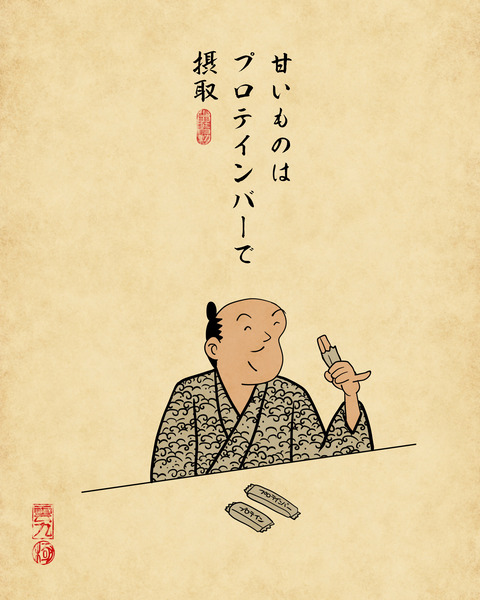 甘いものは
プロテインバーで
摂取
プロテインバー
プロテイン